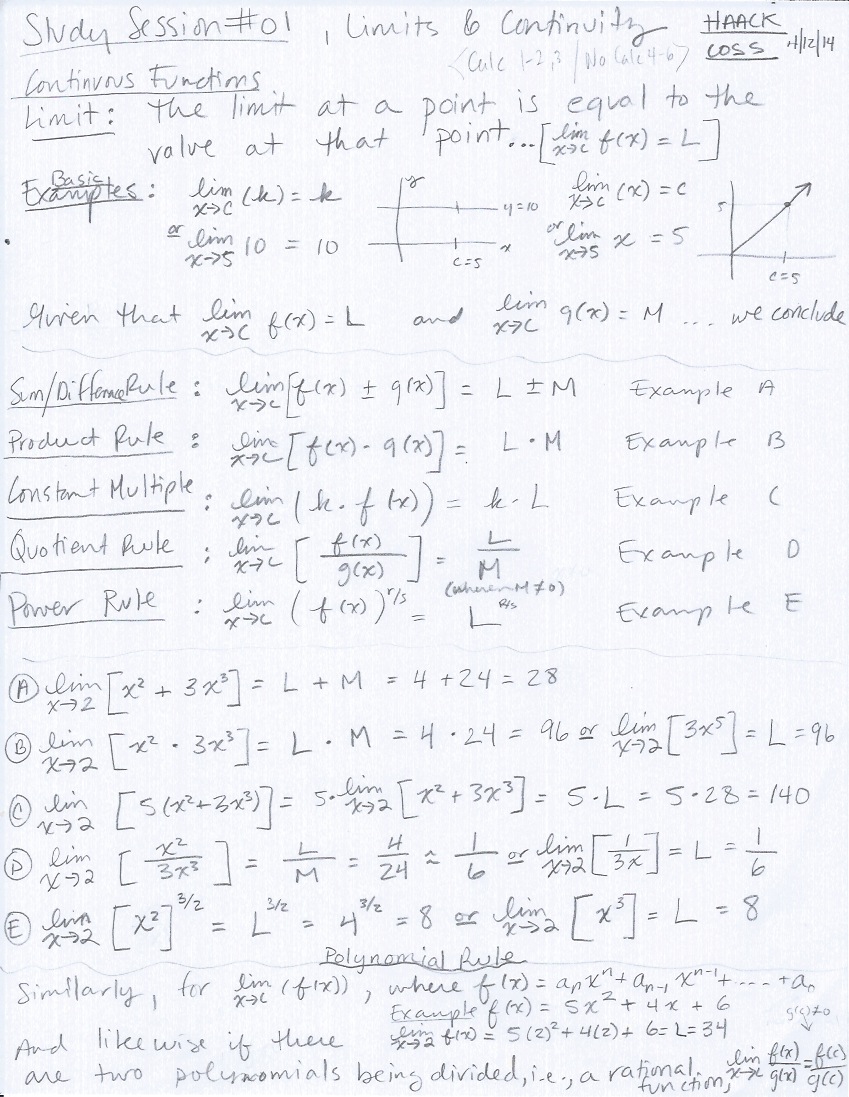 Study Session #01, Limits & Continuity HAACK COSS 4/12/14
<Calc 1-2,3 / No Calc 4-6>
Continuous Functions
Limit: The limit at a point is equal to the
value at that point...[lim x→c f(x) = L]
Basic
Examples: lim x→c (k) = k y y=10 x c=5 lim x→c (x) = c 5 c=5
or lim x→5 10 = 10 or lim x→5 x = 5
Given that lim x→c f(x) = L and lim x→c g(x) = M ... we conclude
Sum/Difference Rule: lim x→c [f(x) ± g(x)] = L ± M Example A
Product Rule: lim x→c [f(x) · g(x)] = L · M Example B
Constant Multiple: lim x→c (k · f(x)) = k · L Example C
Quotient Rule: lim x→c [f(x)/g(x)] = L/M (where M ≠ 0) Example D
Power Rule: lim x→c (f(x))^r/s = L^R/s Example E
Ⓐ lim x→2 [x² + 3x³] = L + M = 4 + 24 = 28
Ⓑ lim x→2 [x² · 3x³] = L · M = 4 · 24 = 96 or lim x→2 [3x⁵] = L = 96
Ⓒ lim x→2 [5(x²+3x³)] = 5·lim x→2 [x² + 3x³] = 5·L = 5·28 = 140
Ⓓ lim x→2 [x²/3x³] = L/M = 4/24 ≈ 1/6 or lim x→2 [1/3x] = L = 1/6
Ⓔ lim x→2 [x²]^3/2 = L^3/2 = 4^3/2 = 8 or lim x→2 [x³] = L = 8
Polynomial Rule
Similarly, for lim x→c (f(x)), where f(x) = aₙxⁿ + aₙ₋₁xⁿ⁻¹ + .... + aₙ
Example f(x) = 5x² + 4x + 6
And likewise if there lim x→2 f(x) = 5(2)² + 4(2) + 6 = L = 34 g(c)≠0
are two polynomials being divided, i.e., a rational function, lim x→c f(x)/g(x) = f(c)/g(c)